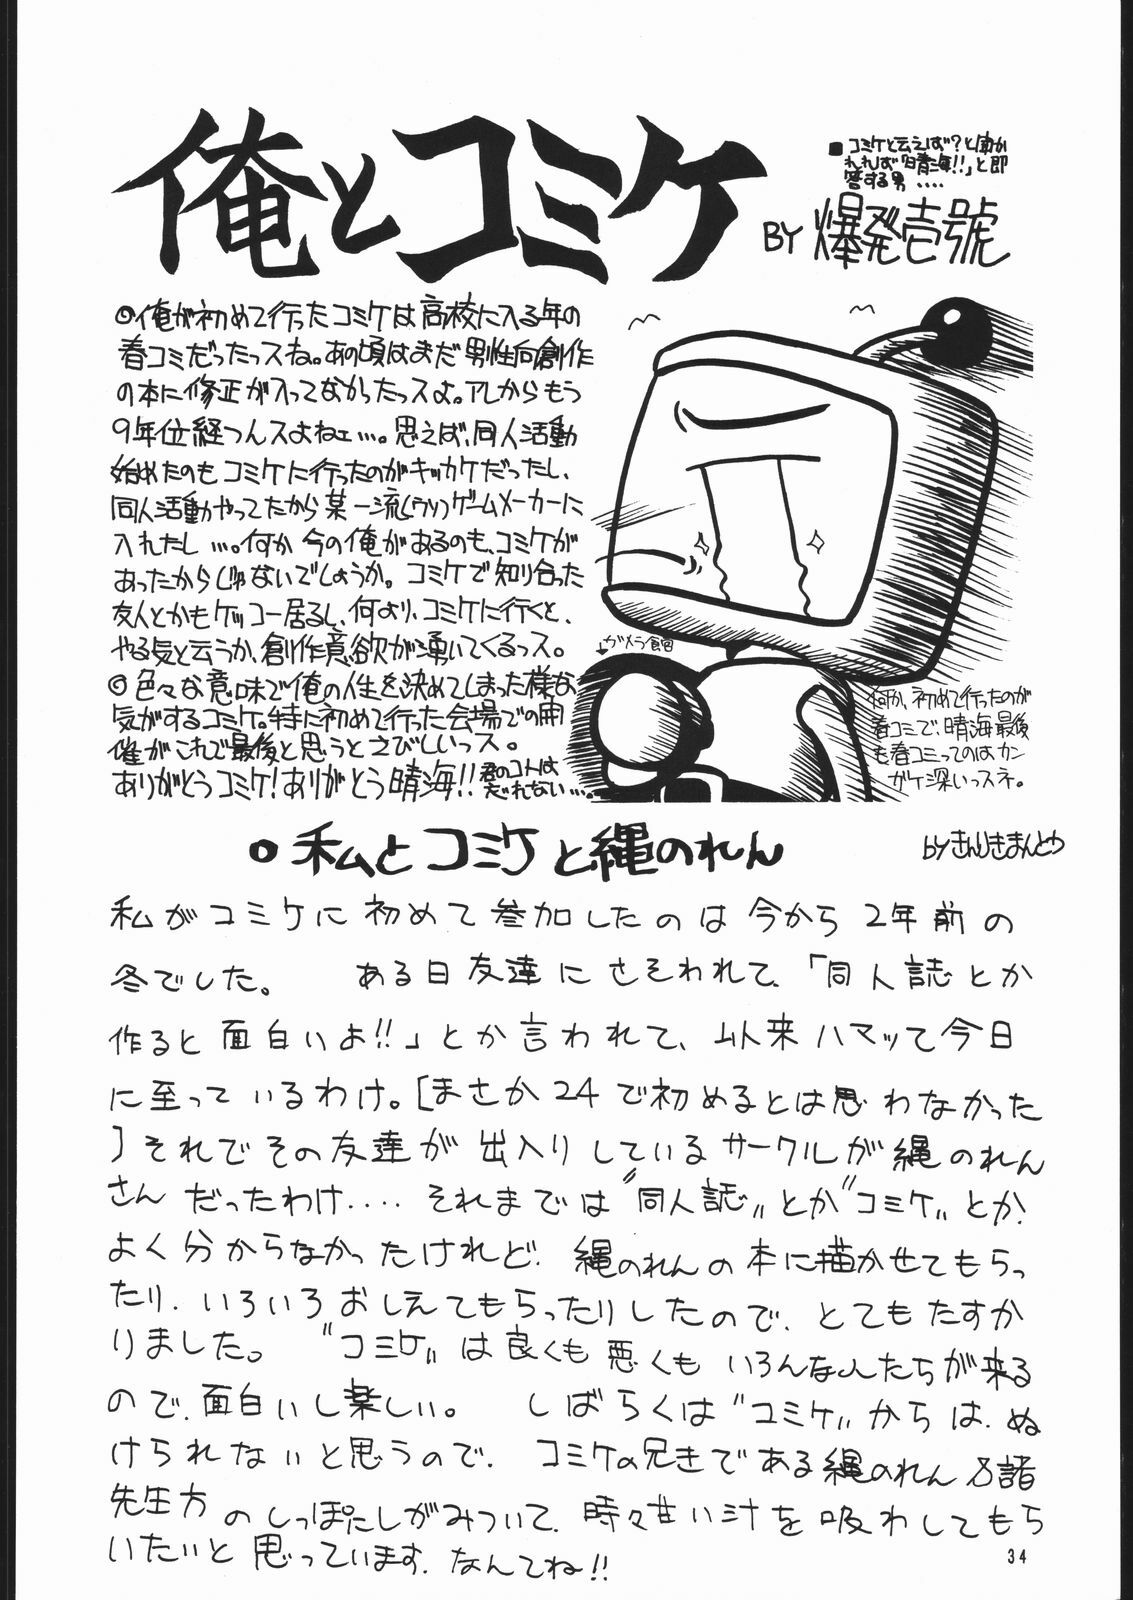 俺とコミケ
■コミケと云えば?と聞か
れれば「晴海!!」と即
答する男....
BY 爆発壱號
◎俺が初めて行ったコミケは高校に入る年の
春コミだったっスね。あの頃はまだ男性向創作
の本に修正が入ってなかったっスよ。アレからもう
9年位経つんスよねェ…。思えば、同人活動
始めたのもコミケに行ったのがキッカケだったし、
同人活動やってたから某一流(ウソ)ゲームメーカーに
入れたし…。何か今の俺があるのも、コミケが
あったからじゃないでしょうか。コミケで知り合った
友人とかもケッコー居るし、何より、コミケに行くと、
やる気と云うか、創作意欲が湧いてくるっス。
◎色々な意味で俺の人生を決めてしまった様な
気がするコミケ。特に初めて行った会場での開
催がこれで最後と思うとさびしいっス。
ありがとうコミケ!ありがとう晴海!!君のコトは
忘れない…。
ガメラ食自
何か、初めて行ったのが
春コミで、晴海最後
も春コミってのはカン
ガケ深いっスネ。
○私とコミケと縄のれん
byきんりきまんとう
私がコミケに初めて参加したのは今から2年前の
冬でした。 ある日友達にさそわれて、「同人誌とか
作ると面白いよ!!」とか言われて、以来ハマッて今日
に至っているわけ。[まさか24で初めるとは思わなかった
]それでその友達が出入りしているサークルが縄のれん
さんだったわけ.... それまでは"同人誌"とか"コミケ"とか、
よく分からなかったけれど、縄のれんの本に描かせてもらっ
たり、いろいろおしえてもらったりしたので、とてもたすか
りました。 "コミケ"は良くも悪くもいろんな人たちが来る
ので、面白いし楽しい。 しばらくは"コミケ"からは、ぬ
けられないと思うので、コミケの兄きである縄のれん 諸
先生方のしっぽにしがみついて、時々甘い汁を吸わしてもら
いたいと思っています、なんてね!!
34